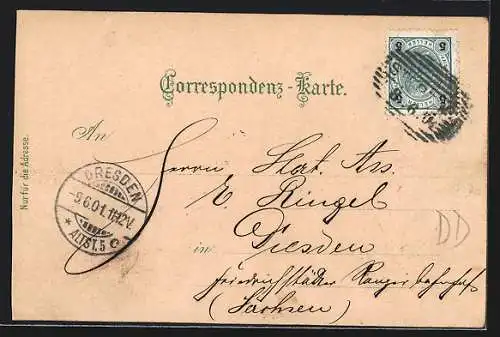 Correspondenz-Karte.
An
Herrn Stat. Ass.
E. Ringel
in Dresden
Friedrichstädter Rangierbahnhof
(Sachsen)
Nur für die Adresse.
DRESDEN
9.6.01.11-12V.
* ALTST. 5 c
5 5
DD